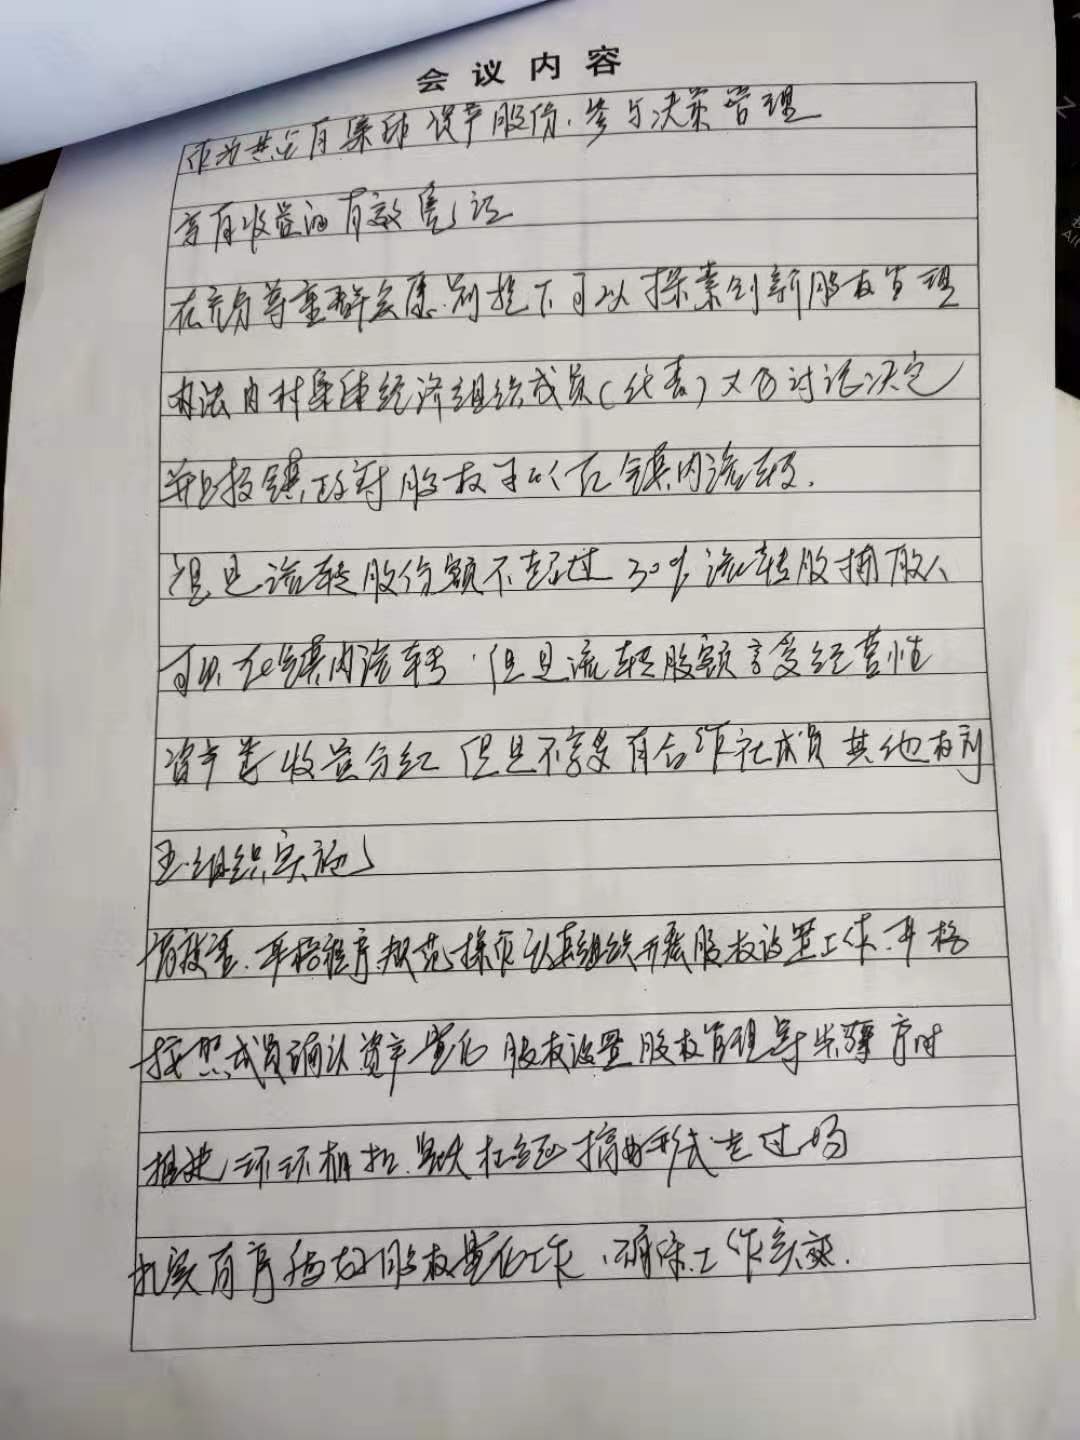 会议内容
作为其占有集体资产股份、参与决策管理
享有收益的有效凭证
在充分尊重群众意愿前提下可以探索创新股权管理
办法由村集体经济组织成员(代表)大会讨论决定
并上报镇政府股权可以在镇内流转.
但是流转股份额不超过30%流转股
可以在镇内流转.但是流转股额享受经营性
资产类收益分红但是不享受有合作社成员其他权利
五.组织实施
严格程序规范操作认真组织开展股权设置工作.严格
按照成员确认资产量化股权设置股权管理等步骤序时
推进环环相扣.坚决杜绝搞形式走过场
扎实有序稳妥股权量化工作、确保工作实效.